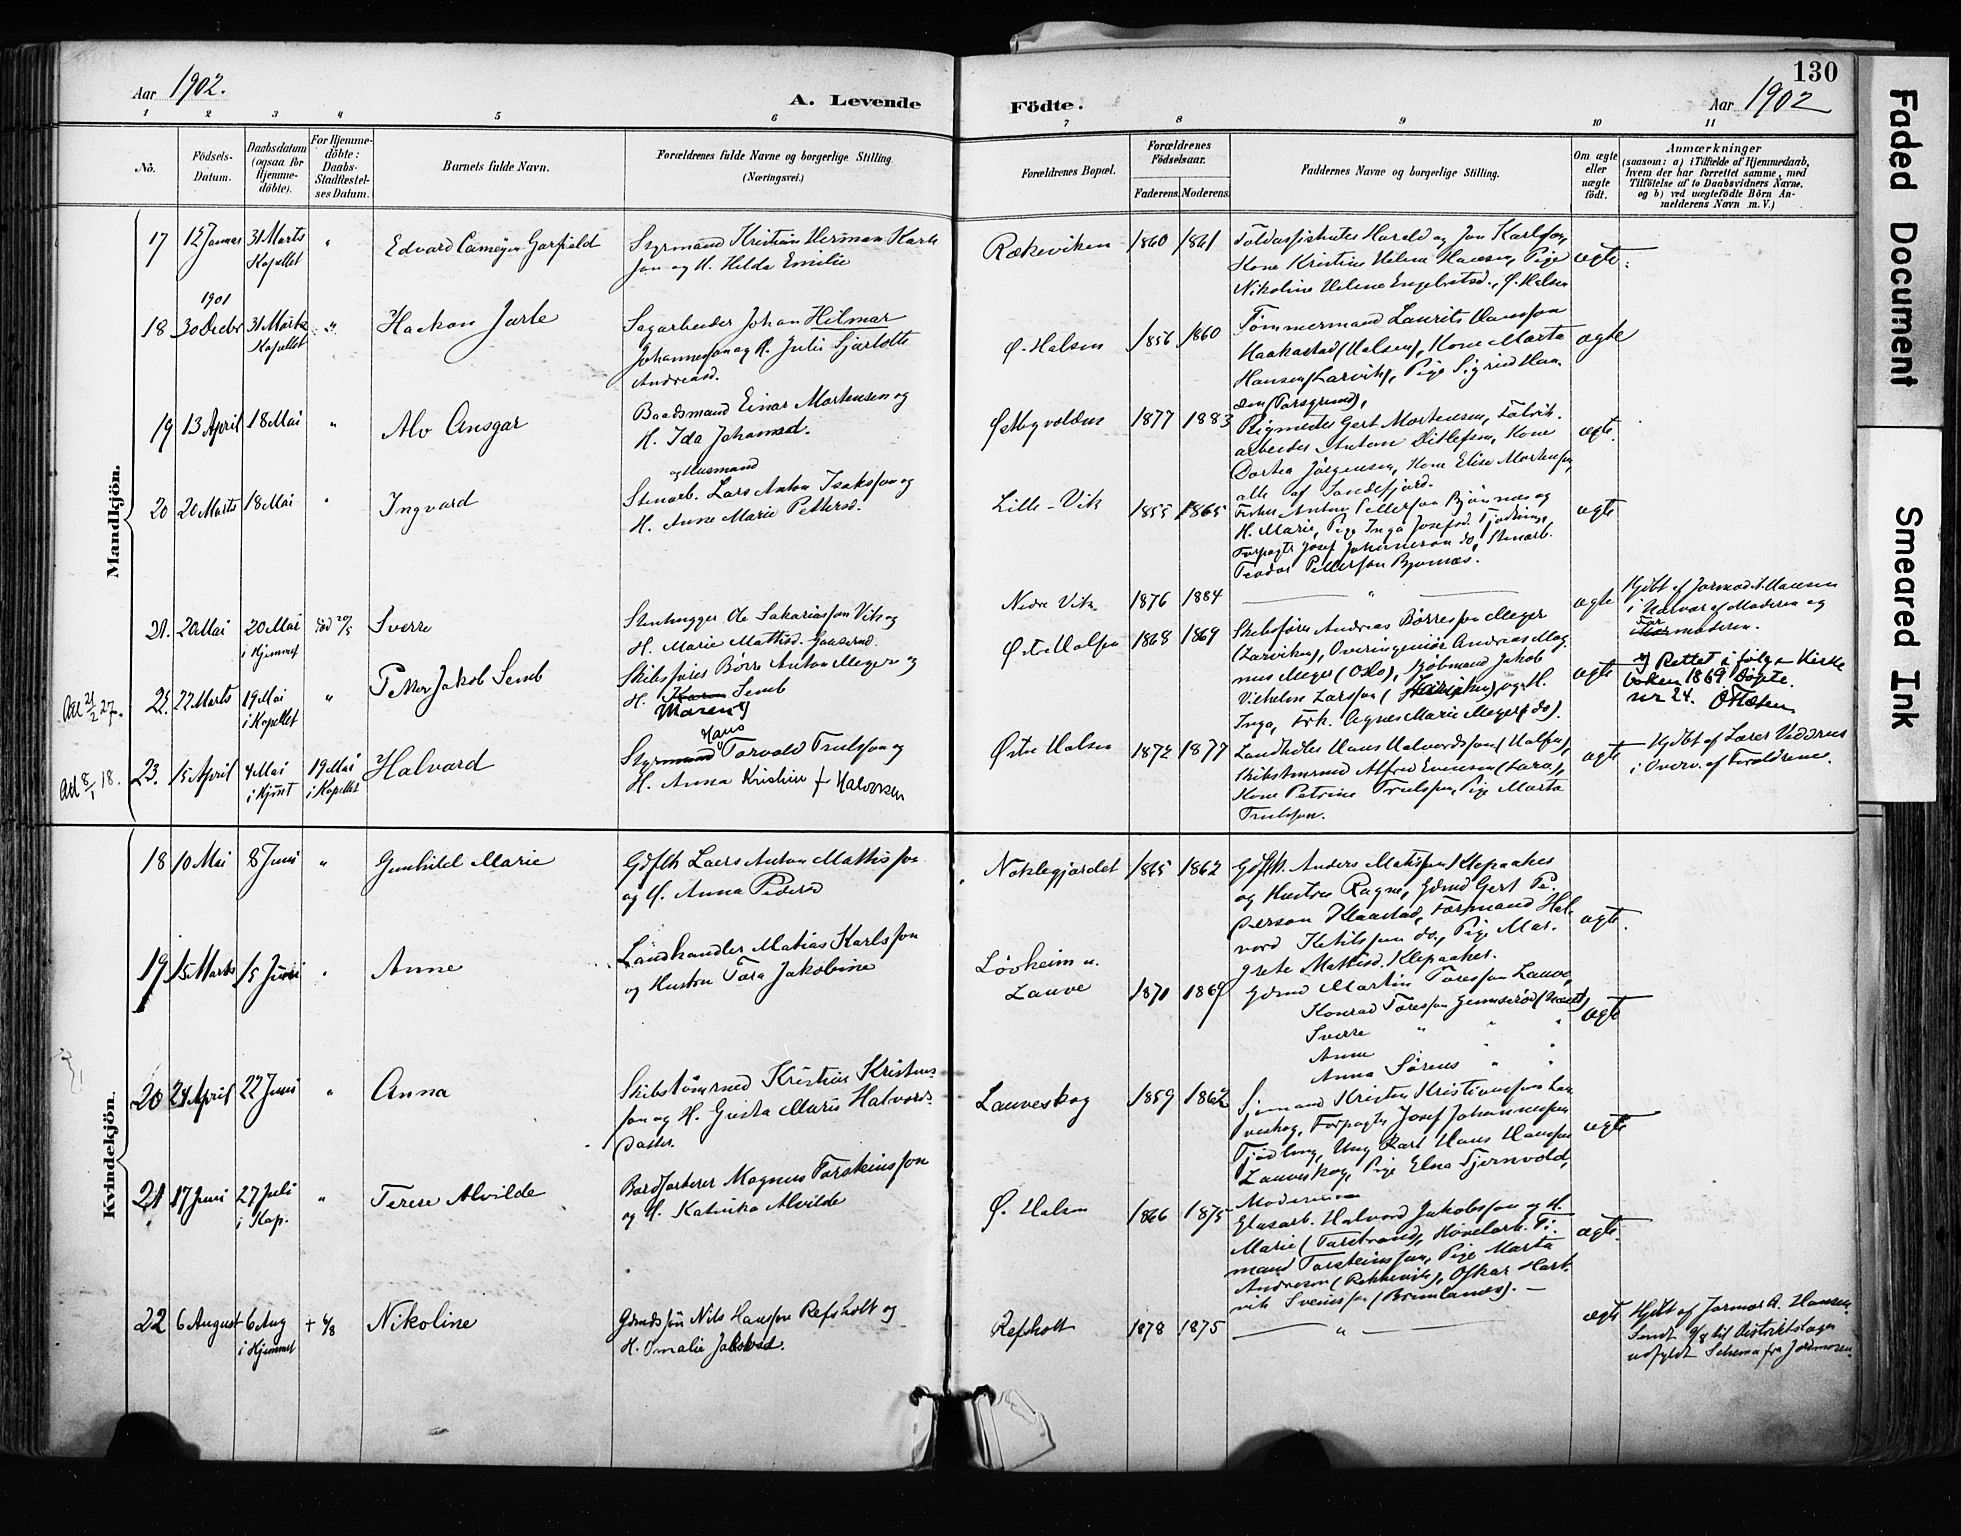 130
Aar 1902.
A. Levende
Födte.
Aar 1902
1 2 3 4 5 6 7 8 9 10 11
No.
Födsels-Datum.
Daabsdatum (ogsaa for Hjemme-döbte).
For Hjemme-döbte: Daabs-Stadfæstel-ses Datum.
Barnets fulde Navn.
Forældrenes fulde Navne og borgerlige Stilling.
(Næringsvei.)
Forældrenes Bopæl.
Forældrenes Födselsaar.
Faderens. Moderens.
Faddernes Navne og borgerlige Stilling.
Om ægte eller uægte födt.
Anmærkninger
(saasom: a) i Tilfælde af Hjemmedaab, hvem der har forrettet samme, med Tilföielse af to Daabsvidners Navne, og b) ved uægtefödte Börn An-melderens Navn m. V.)
Mandkjön.
17 12 Januar 31 Marts Kapellet " Edvard Garfield
Styrmand Kristian Herman Karls
son og H. Hilda Emilie
Rækeviken 1860 1861
Harald og Karlsen,
Kone Kristine Helene Hansen, Pige
Nikoline Helene Engebretsd., Ø. Halsen
ægte
1901
18 30 Decbr 31 Marts Kapellet " Haakon Jarle
Sagarbeider Johan Hilmar
Johannesson og H. Julie
Andreasd.
Ø. Halsen 1856 1860
Tømmermand Laurits Hansson
Haakastad (Halsen), Kone Marta
Hansen (Larvik), Pige Sigrid
(Porsgrund),
ægte
19 13 April 18 Mai " Alv Ansgar
Baadsmand Einar Mortensen og
H. Ida Johansd.
1877 1883
Rigmester Gert Mortensen, Fabrik-
arbeider Anton Ditlefsen, Kone
Dortea Jörgensen, Kone Elise Mortensen,
alle af Sandefjord.
ægte
20 20 Marts 18 Mai " Ingvard
og Husmand
Stenarb. Lars Anton Isaksson og
H. Anne Marie Pettersd.
Lille-Vik 1855 1865
Anton Pettersson Bjønnes og
H. Marie, Pige Inga Josefsd. Tjødling,
Forpagter Josef Johannesson do, Stenarb.
Teodor Pettersson Bjønnes.
ægte
21. 20 Mai 20 Mai i Hjemmet død 20/5 Sverre
Stenhugger Ole Sakariasson Vik og
H. Marie Mathisd.
Nedre Vik 1876 1884
"
ægte
Hjdbt af Jormod A. Hansen
i Nærvær af Moderen og
Far moderen.
Att 21/2 27.
22. 22 Marts 19 Mai i Kapellet " Petter Jakob Semb
Skibsfører Børre Anton Meyer og
H. Karen Semb
Maren x)
Østre Halsen 1868 1869
Skibsfører Andreas Børresson Meyer
(Larviken), Overingeniør Andreas Mag
nus Meyer (Oslo), Kjøbmand Jakob
Vilhelm Larsson, og H.
Inga, Frk. Agnes Marie Meyer (do).
ægte
x) Rettet i følge Kirke
boken 1869 Døpte
nr 24.
Att 8/1 18.
23. 15 April 4 Mai i Hjmt 19 Mai i Kapellet Halvard
Hans
Styrmand Torvald Trulsson og
H. Anna Kristine f Halvorsen
Østre Halsen 1872 1877
Landhdler Hans Halvordsson (Halsen),
Skibstmrmd Alfred Evensen,
Kone Petrine Trulssen, Pige Marta
Trulsson.
ægte
Hjdbt af Lærer
i Overv. af Forældrene.
Kvindekjön.
18 10 Mai 8 Juni " Gunhild Marie
Lars Anton Mathisson
og H. Anna Pedersd
Nøklegjordet 1865 1862
Anders Matisson Klepaaker
og Hustru Ragne, Gdmd Gert Pe-
dersson Klaastad, Formand Hal-
vord Ketilsson do, Pige Mar-
grete Mathisd. Klepaaker.
ægte.
19 15 Marts 15 Juni " Anne
Landhandler Matias Karlsson
og Hustru Tora Jakobine
Løvheim u.
Lauve
1871 1869
Gdmd Martin Toresson Lauve,
Konrad Toresson
Sverre " " "
Anna " "
Anna Sørens " "
ægte
20 24 April 22 Juni " Anna
Skibstömrmd Kristian Kristens-
son og H. Gusta Marie Halvords-
datter.
Lauveskog 1859 1862
Sjømand Kristen Kristiansson Lau-
veskog, Forpagter Josef Johannessen
Tjødling, Ung Karl Hans Hansson
Lauveskog, Pige Elna Tjernvold,
Moderen
ægte
21 17 Juni 27 Juli i Kap. " Terese Alvilde
Magnus Torsteinsson
og H. Katinka Alvilde
Ø. Halsen 1866 1875
Glasarb. Halvord Jakobsson og H.
Marie (Torstrand), Høvelarb. Ti-
mand Torsteinsson, Pige Marta
Andresen (Rekkevik), Oskar Hart-
vik Svensson (Brunlanæs). —
ægte.
22 6 August 6 Aug i Hjemmet + 6/8 Nikoline
Gmdssön Nils Hansson Refsholt og
H. Omalie Jakobsd.
Refsholt 1878 1875
"
ægte
Hjdbt af Jormor A. Hansen.
Sendt 9/8 til Distriktslægen
udfyldt Schema fra Jordmoren.
Faded Document
Smeared Ink